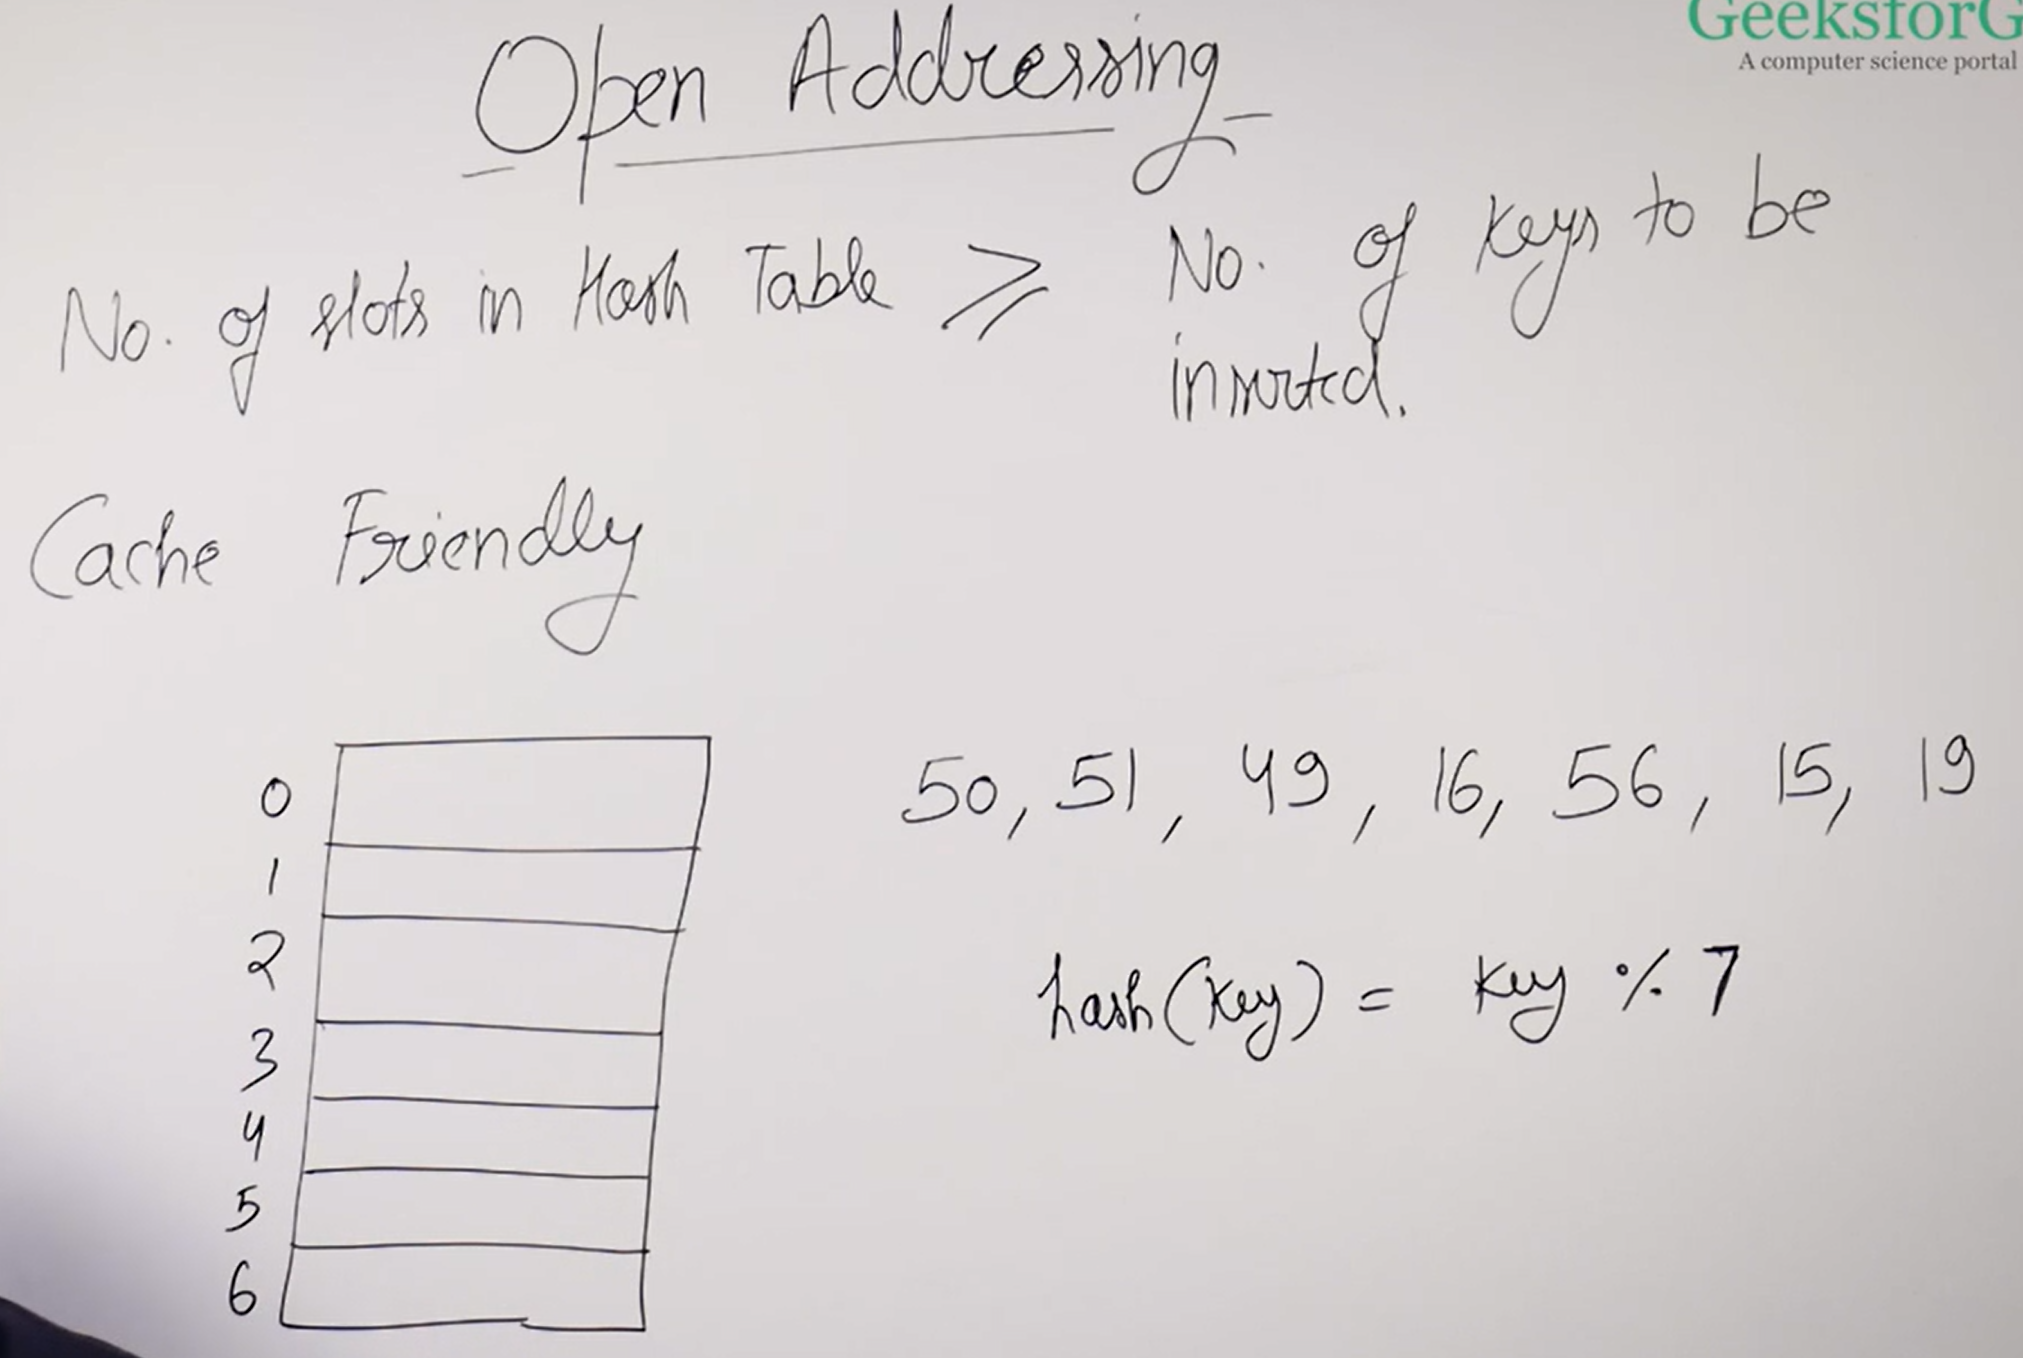 GeeksforG
A computer science portal
Open Addressing
No. of slots in Hash Table ⩾ No. of keys to be
inserted.
Cache Friendly
0
1
2
3
4
5
6
50, 51, 49, 16, 56, 15, 19
hash(key) = key % 7